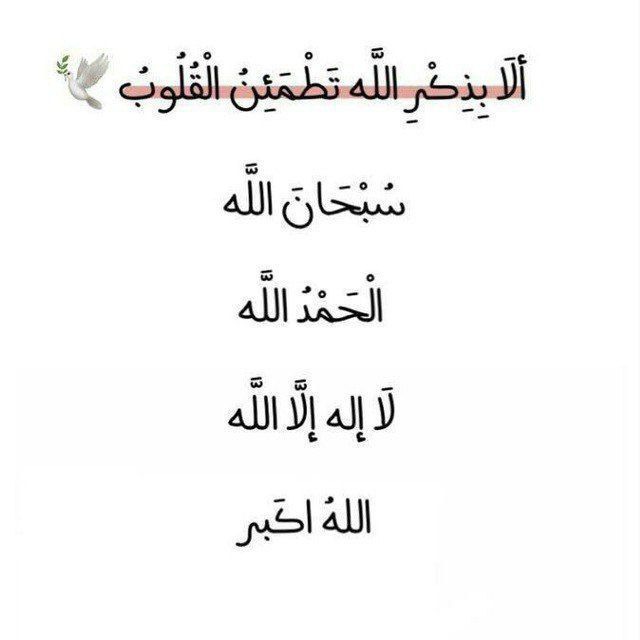 ألَا بِذِكْرِ اللَّه تَطْمَئِنُ الْقُلُوبُ
سُبْحَانَ اللَّه
الْحَمْدُ اللَّه
لَا إله إلَّا اللَّه
اللهُ اكَبر